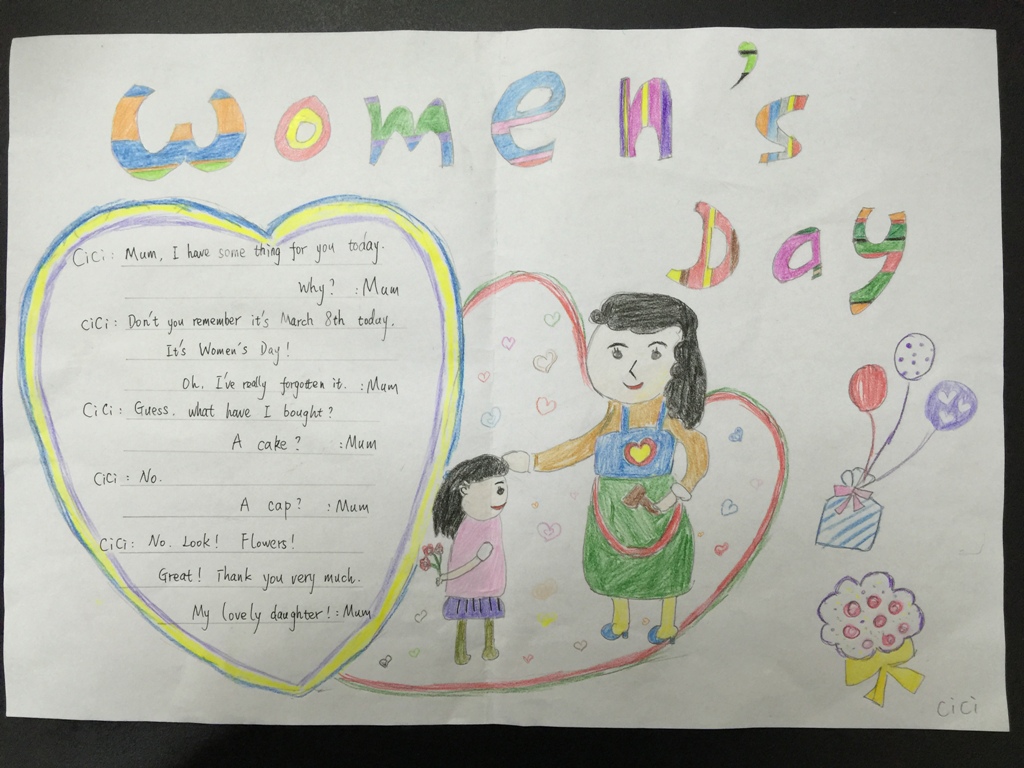 women's
Day
CiCi: Mum, I have some thing for you today.
Why? :Mum
CiCi: Don't you remember it's March 8th today.
It's Women's Day!
Oh, I've really forgotten it. :Mum
CiCi: Guess. what have I bought?
A cake? :Mum
CiCi: No.
A cap? :Mum
CiCi: No. Look! Flowers!
Great! Thank you very much.
My lovely daughter! :Mum
CiCi